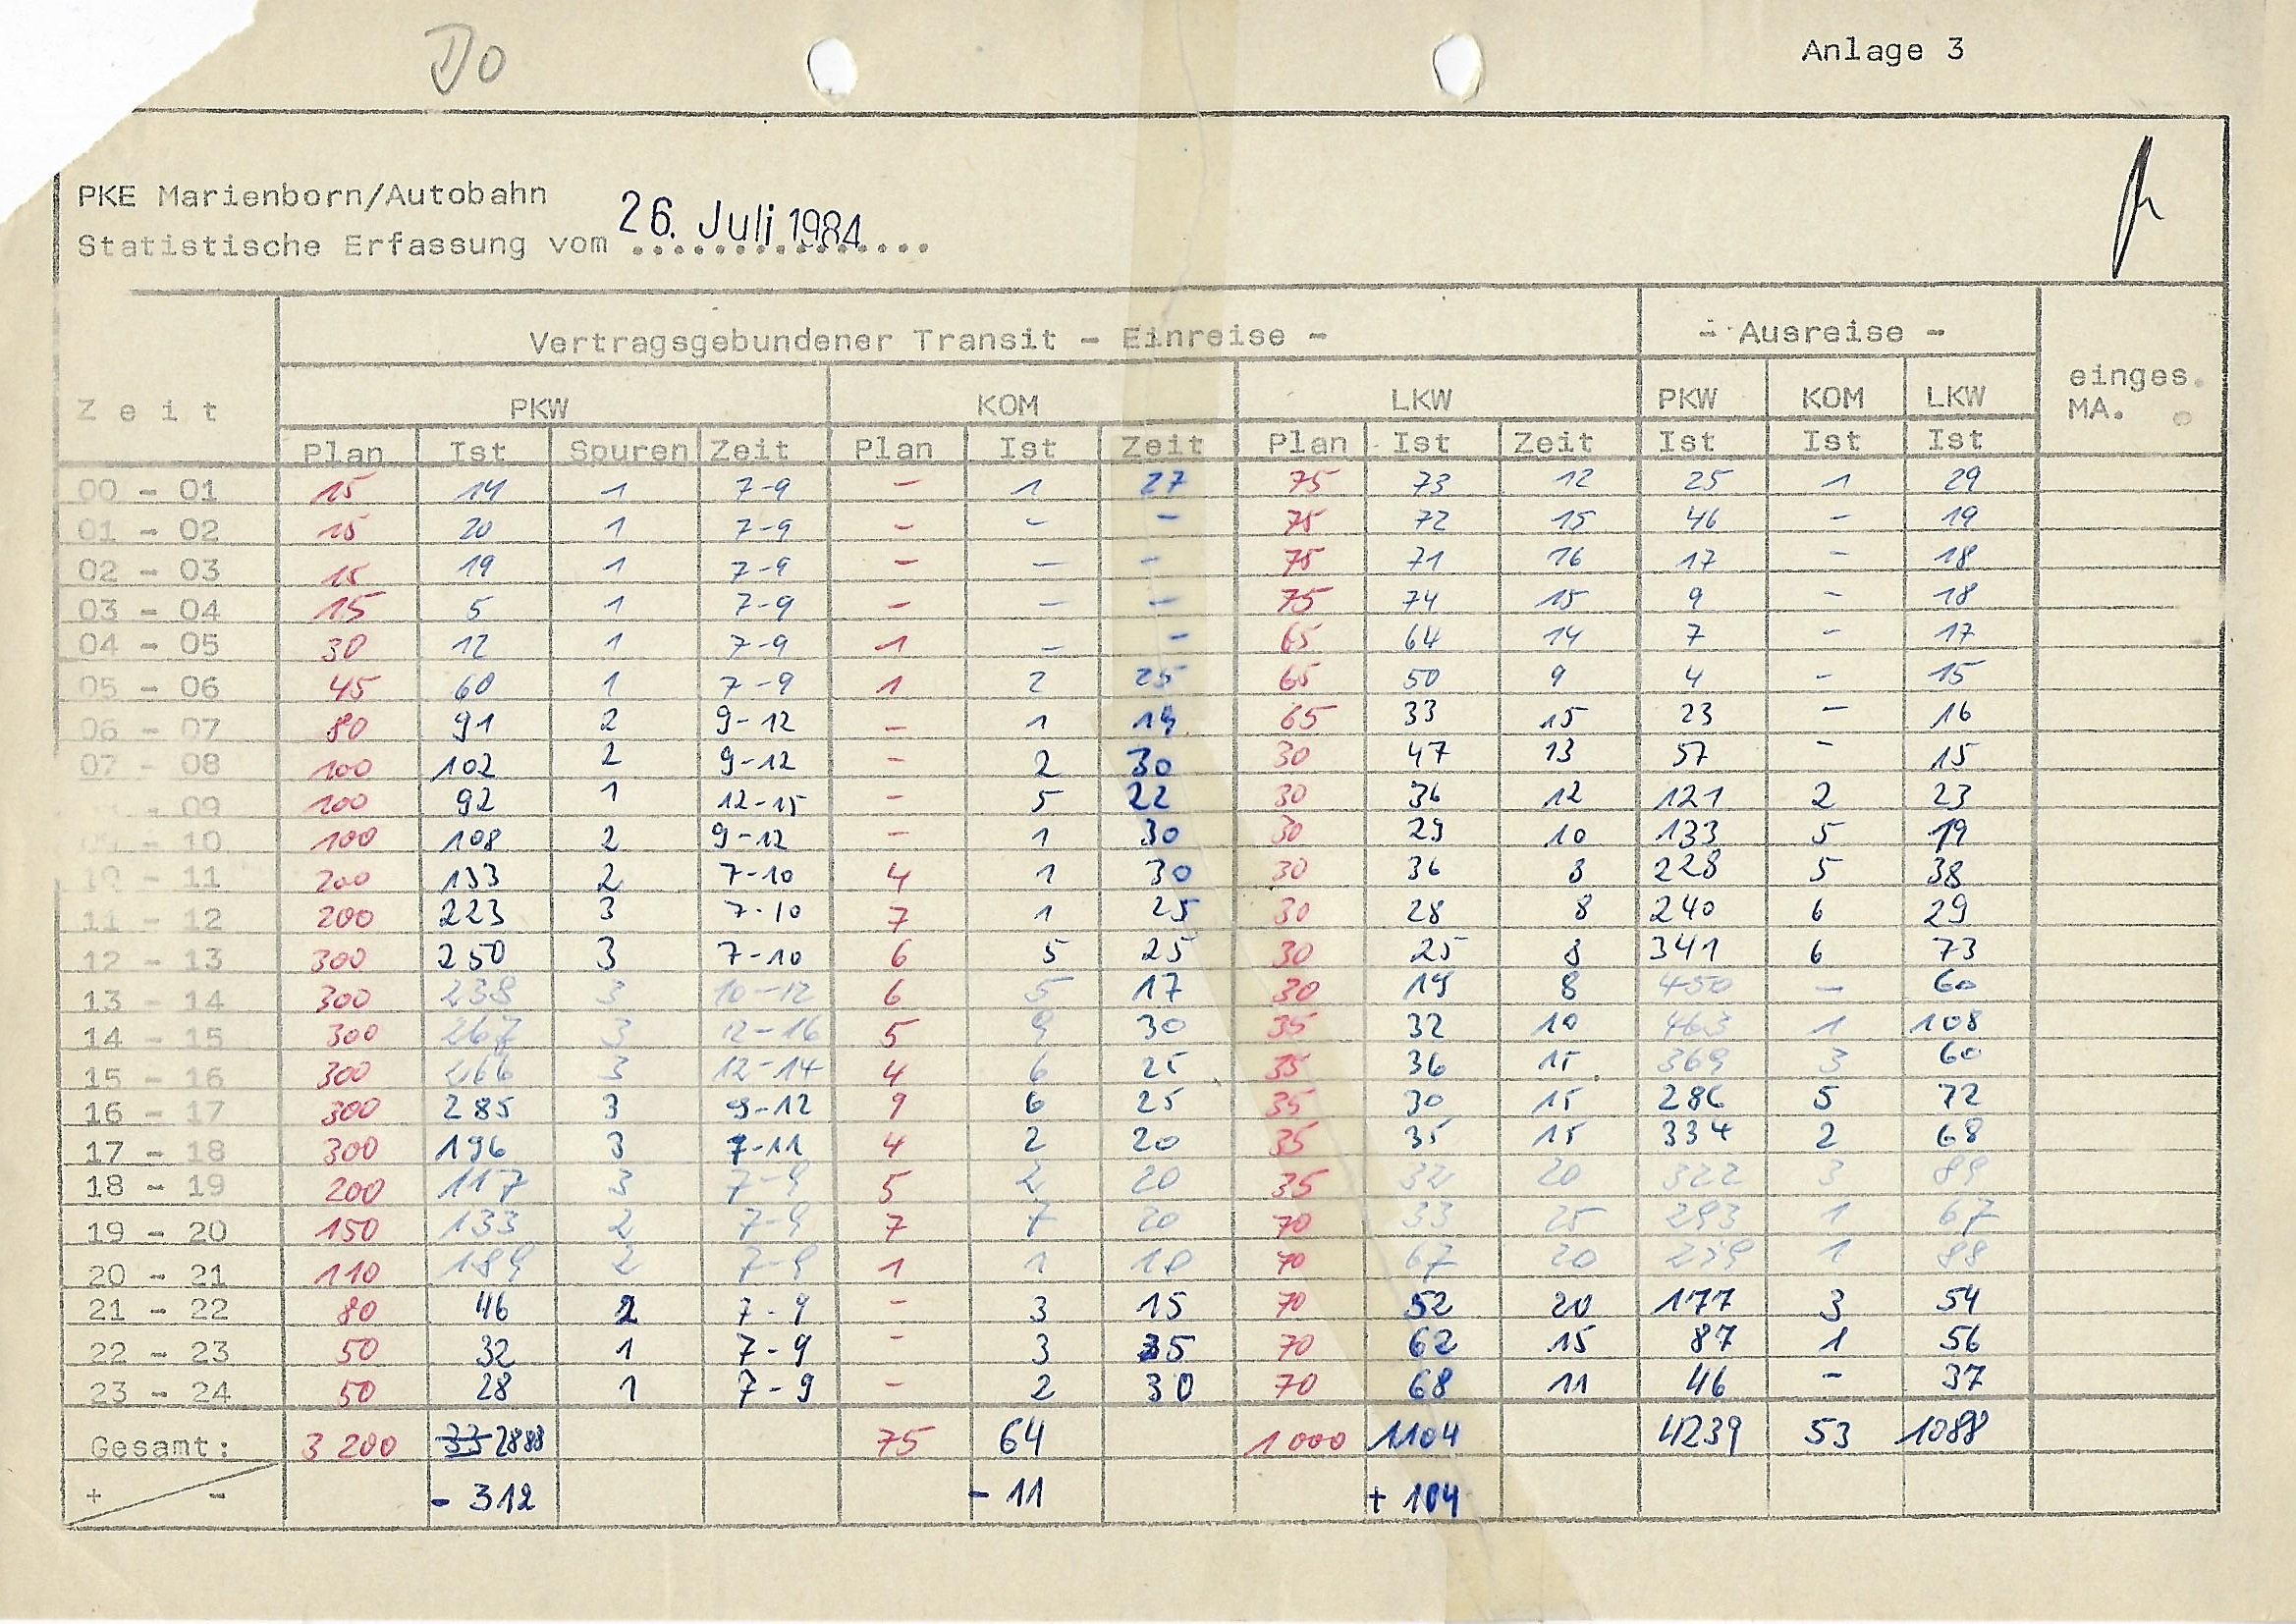 Do
Anlage 3
PKE Marienborn/Autobahn
Statistische Erfassung vom 26. Juli 1984
Vertragsgebundener Transit - Einreise - - Ausreise -
Zeit PKW KOM LKW PKW KOM LKW einges. MA.
Plan Ist Spuren Zeit Plan Ist Zeit Plan Ist Zeit Ist Ist Ist
00 - 01 15 14 1 7-9 - 1 27 75 73 12 25 1 29
01 - 02 15 20 1 7-9 - - - 75 72 15 46 - 19
02 - 03 15 19 1 7-9 - - - 75 71 16 17 - 18
03 - 04 15 5 1 7-9 - - - 75 74 15 9 - 18
04 - 05 30 12 1 7-9 1 - - 65 64 14 7 - 17
05 - 06 45 60 1 7-9 1 2 25 65 50 9 4 - 15
06 - 07 80 91 2 9-12 - 1 19 65 33 15 23 - 16
07 - 08 100 102 2 9-12 - 2 30 30 47 13 57 - 15
- 09 100 92 1 12-15 - 5 22 30 36 12 121 2 23
09 - 10 100 108 2 9-12 - 1 30 30 29 10 133 5 19
10 - 11 200 193 2 7-10 4 1 30 30 36 8 228 5 38
11 - 12 200 223 3 7-10 7 1 25 30 28 8 240 6 29
12 - 13 300 250 3 7-10 6 5 25 30 25 8 341 6 73
13 - 14 300 238 3 10-12 6 5 17 30 19 8 450 - 60
14 - 15 300 267 3 12-16 5 9 30 35 32 10 463 1 108
15 - 16 300 266 3 12-14 4 6 25 35 36 15 369 3 60
16 - 17 300 285 3 9-12 9 6 25 35 30 15 286 5 72
17 - 18 300 196 3 7-11 4 2 20 35 35 15 334 2 68
18 - 19 200 117 3 7-9 5 2 20 35 32 20 322 3 89
19 - 20 150 133 2 7-9 7 7 20 70 33 25 293 1 67
20 - 21 110 189 2 7-9 1 1 10 70 67 20 259 1 88
21 - 22 80 46 2 7-9 - 3 15 70 52 20 177 3 54
22 - 23 50 32 1 7-9 - 3 35 70 62 15 87 1 56
23 - 24 50 28 1 7-9 - 2 30 70 68 11 46 - 37
Gesamt: 3 200 33 2888 75 64 1 000 1104 4239 53 1088
+ - - 312 - 11 + 104